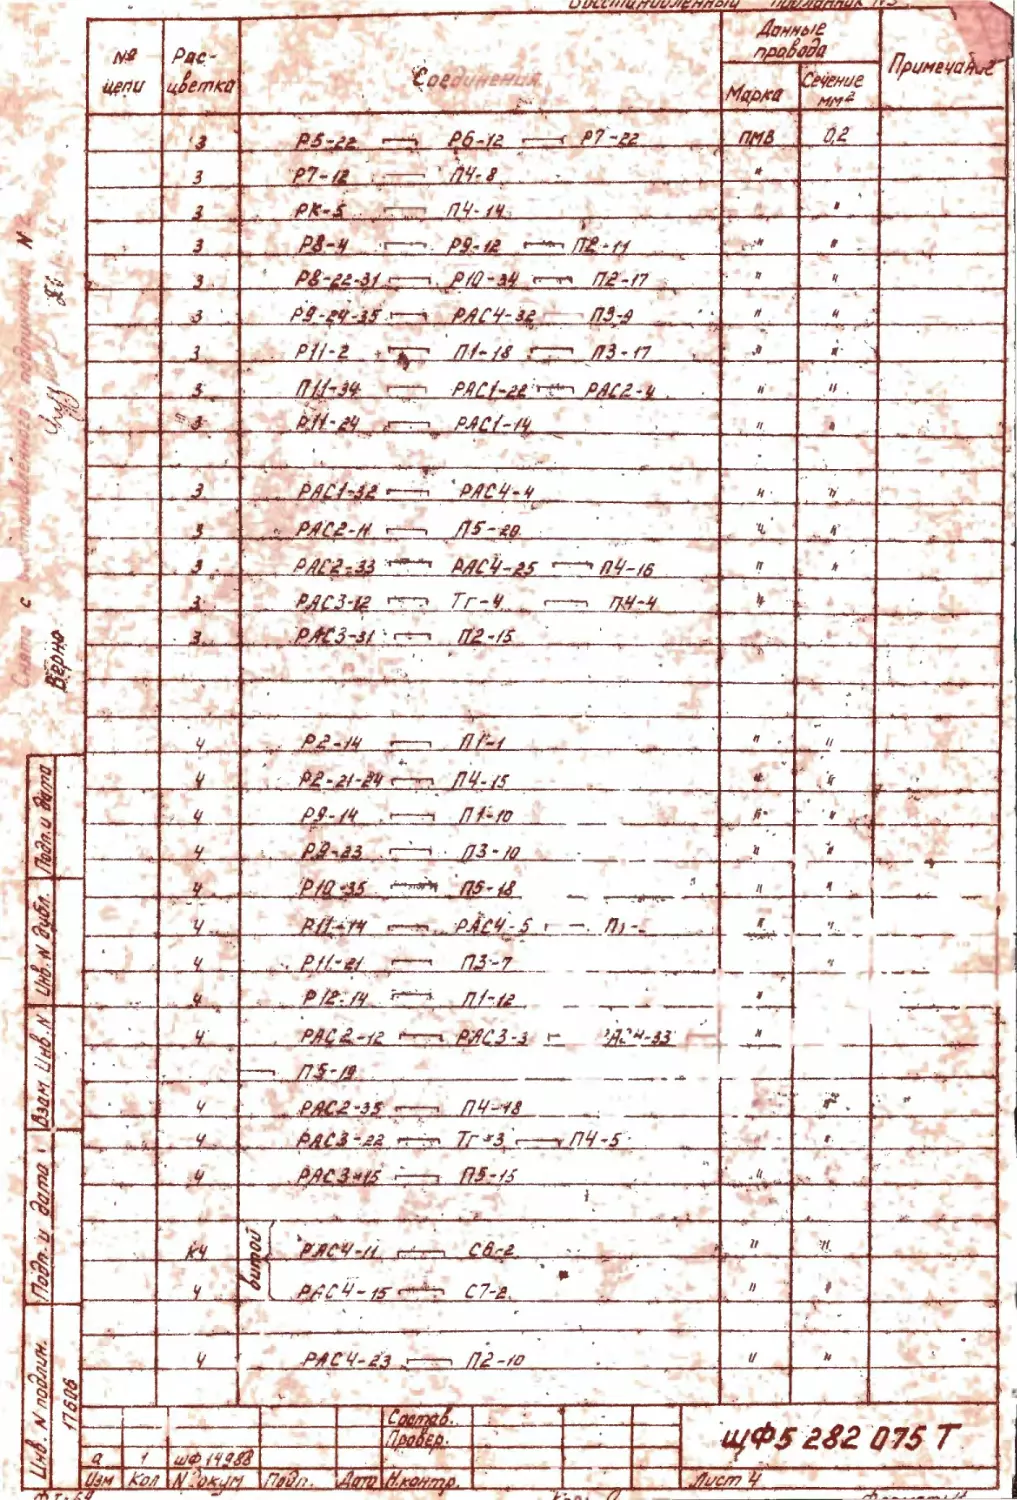 № цепи
Рас-цветка
Соединения
Данные провода
Марка
Сечение мм²
Примечание
3 Р5-22 Р6-12 Р7-22 ПМВ 0,2
3 Р7-12 П4-8 "
3 РК-5 П4-14 "
3 Р8-4 Р9-12 П2-11 " "
3 Р8-22-31 Р10-34 П2-17 " "
3 Р9-24-35 РАС4-32 П3-9 " "
3 Р11-2 П1-18 П3-17 " "
3 П11-34 РАС1-22 РАС2-4 " "
3 Р11-24 РАС1-14 " "
3 РАС1-32 РАС4-4 " "
3 РАС2-11 П5-20 " "
3 РАС2-33 РАС4-25 П4-16 " "
3 РАС3-12 Тг-4 П4-4 "
3 РАС3-31 П2-15 " "
4 Р2-14 П1-1 " "
4 Р2-21-24 П4-15 " "
4 Р9-14 П1-10 " "
4 Р9-33 П3-10 " "
4 Р10-35 П5-18 " "
4 Р11-14 РАС4-5 " "
4 Р11-21 П3-7 "
4 Р12-14 П1-12 "
4 РАС2-12 РАС3-3 "
П5-19
4 РАС2-35 П4-18 "
4 РАС3-22 Тг-3 П4-5 "
4 РАС3-15 П5-15 " "
витой
К4 РАС4-11 С8-2 " "
4 РАС4-15 С7-2 " "
4 РАС4-23 П2-10 " "
Верно
Подп. и дата
Инв. N дубл.
Взам. Инв. N
Подп. и дата
Инв. N подлин.
17606
Состав.
Провер.
а 1 щФ14988
Изм Кол N докум Подп. Дата Н.контр.
щФ5 282 075 Т
Лист 4